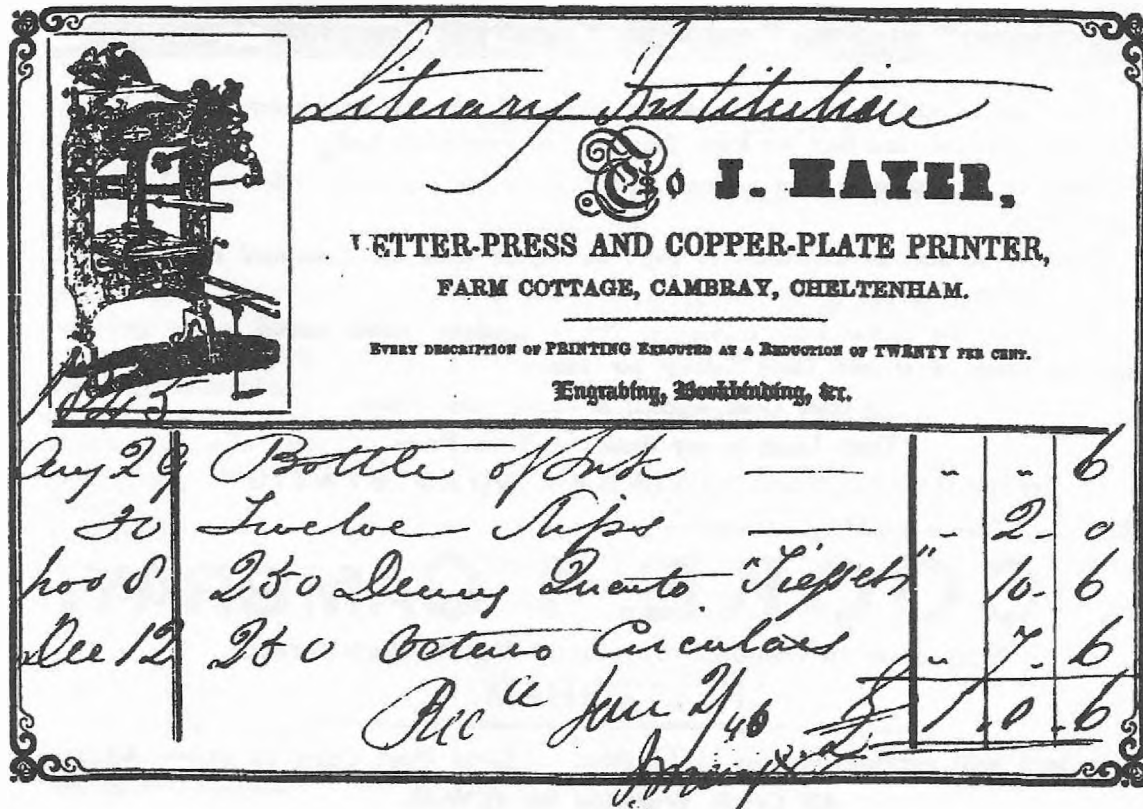 Literary Institution
To J. HAYER,
LETTER-PRESS AND COPPER-PLATE PRINTER,
FARM COTTAGE, CAMBRAY, CHELTENHAM.
EVERY DESCRIPTION OF PRINTING EXECUTED AT A REDUCTION OF TWENTY PER CENT.
Engraving, Bookbinding, &c.
1845
Aug 29 Bottle of Ink — " " 6
30 Twelve Nips — " 2 - 0
Nov 8 250 Demy Quarto " 10 - 6
Dec 12 250 Octavo Circulars " 7 - 6
Recd Jan 2/46 £ 1 . 0 . 6